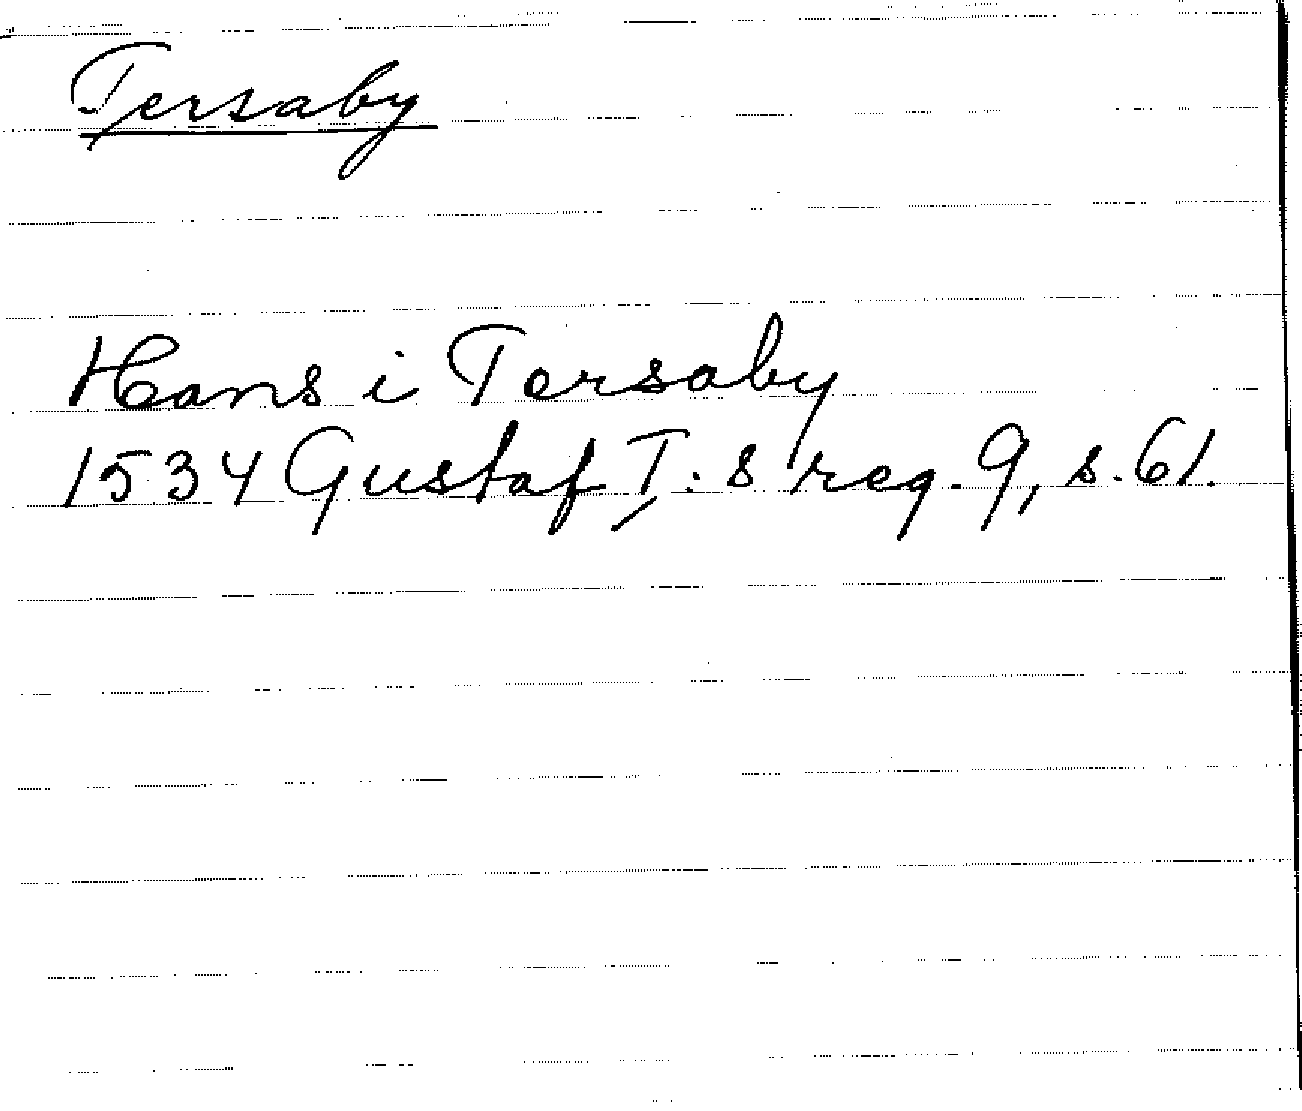 Tersaby
Hans i Torsaby
1534 Gustaf I:s reg. 9, s. 61.